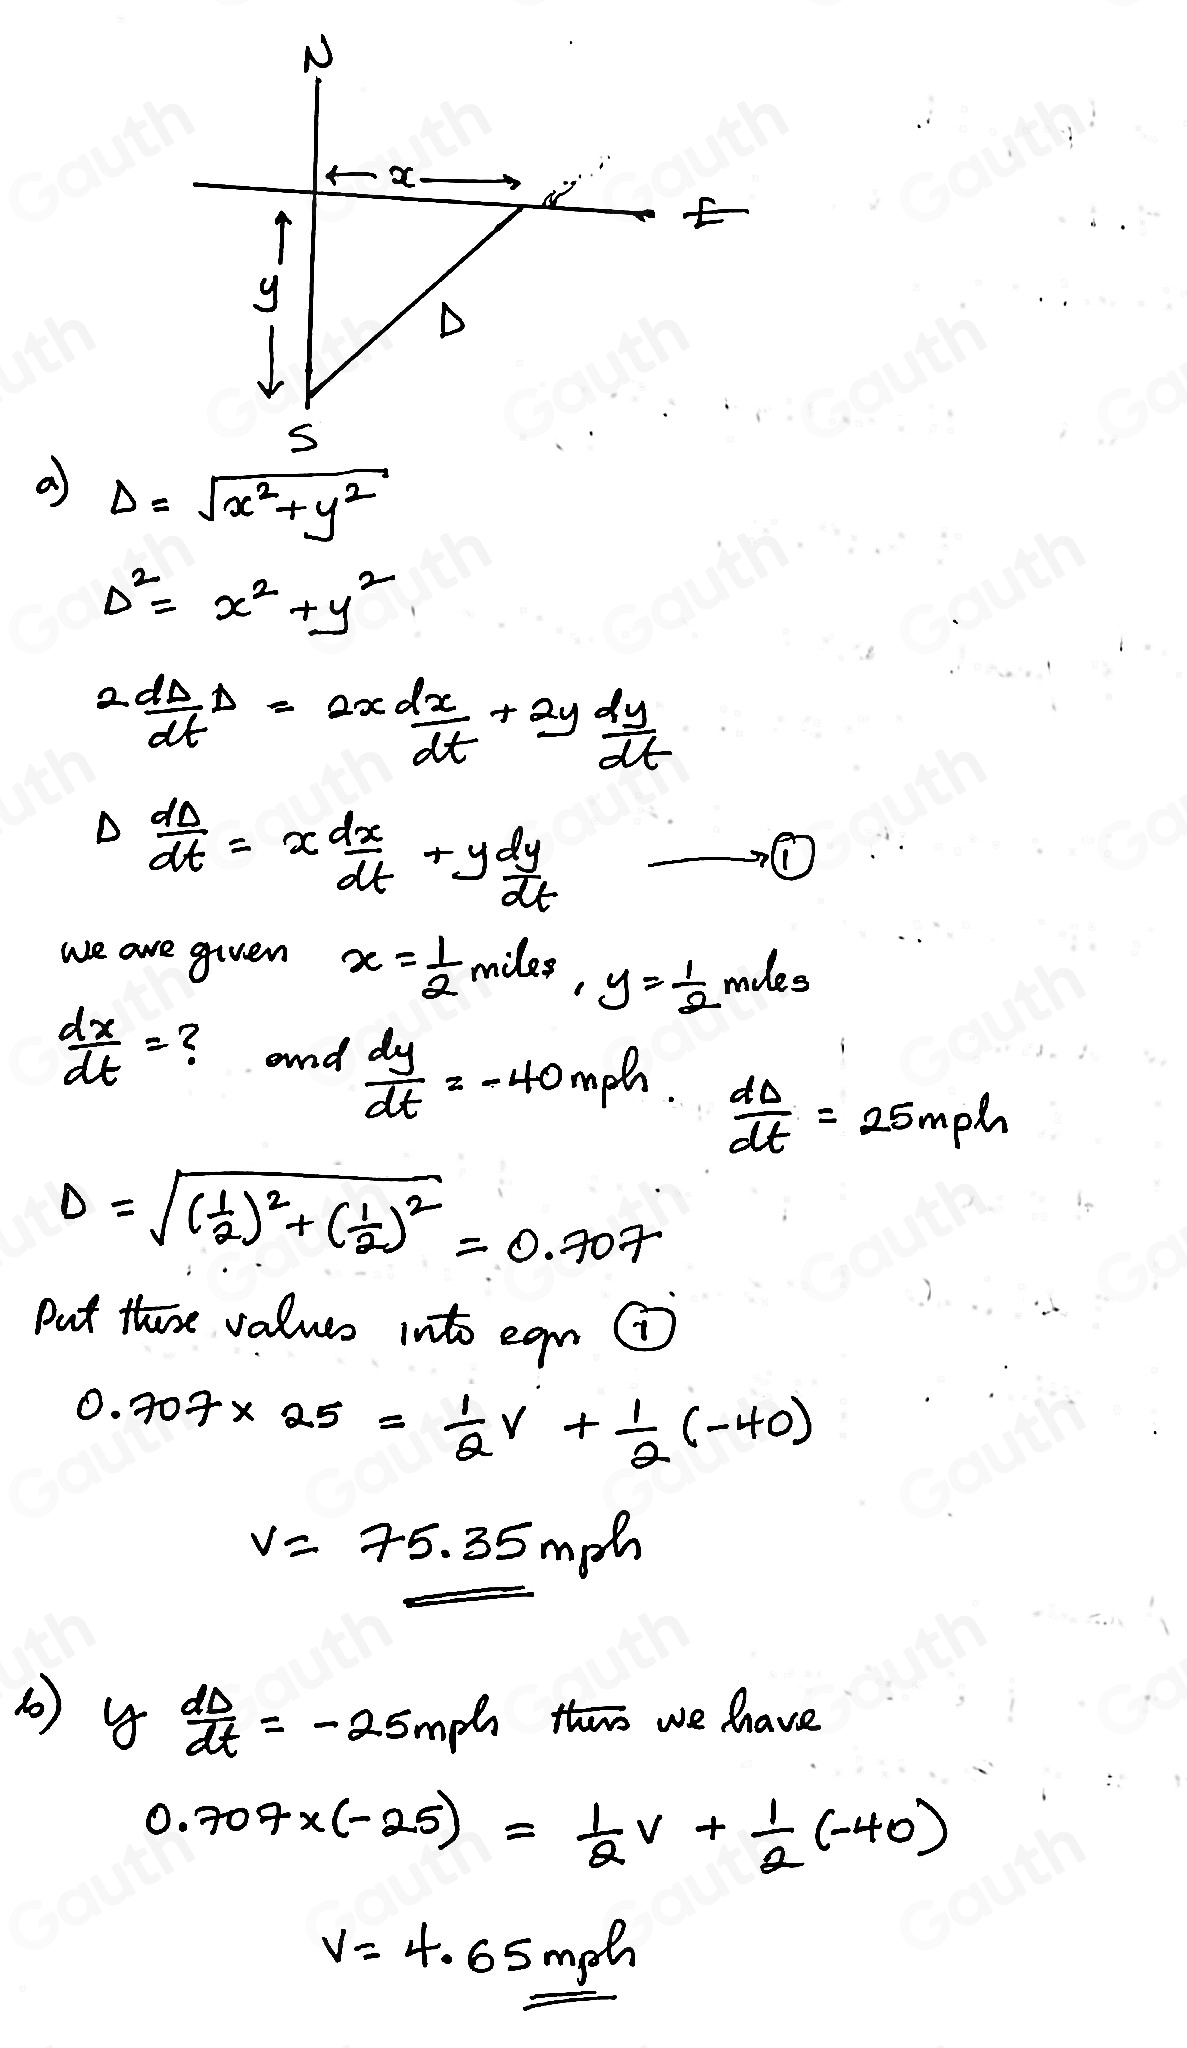 N
x
E
y
D
S
a) D = √(x² + y²)
D² = x² + y²
2 dD/dt D = 2x dx/dt + 2y dy/dt
D dD/dt = x dx/dt + y dy/dt → ①
we are given x = 1/2 miles, y = 1/2 miles
dx/dt = ? and dy/dt = -40 mph. dD/dt = 25 mph
D = √((1/2)² + (1/2)²) = 0.707
Put these values into eqn ①
0.707 × 25 = 1/2 V + 1/2 (-40)
V = 75.35 mph
b) y dD/dt = -25 mph thus we have
0.707 × (-25) = 1/2 V + 1/2 (-40)
V = 4.65 mph
Gauth